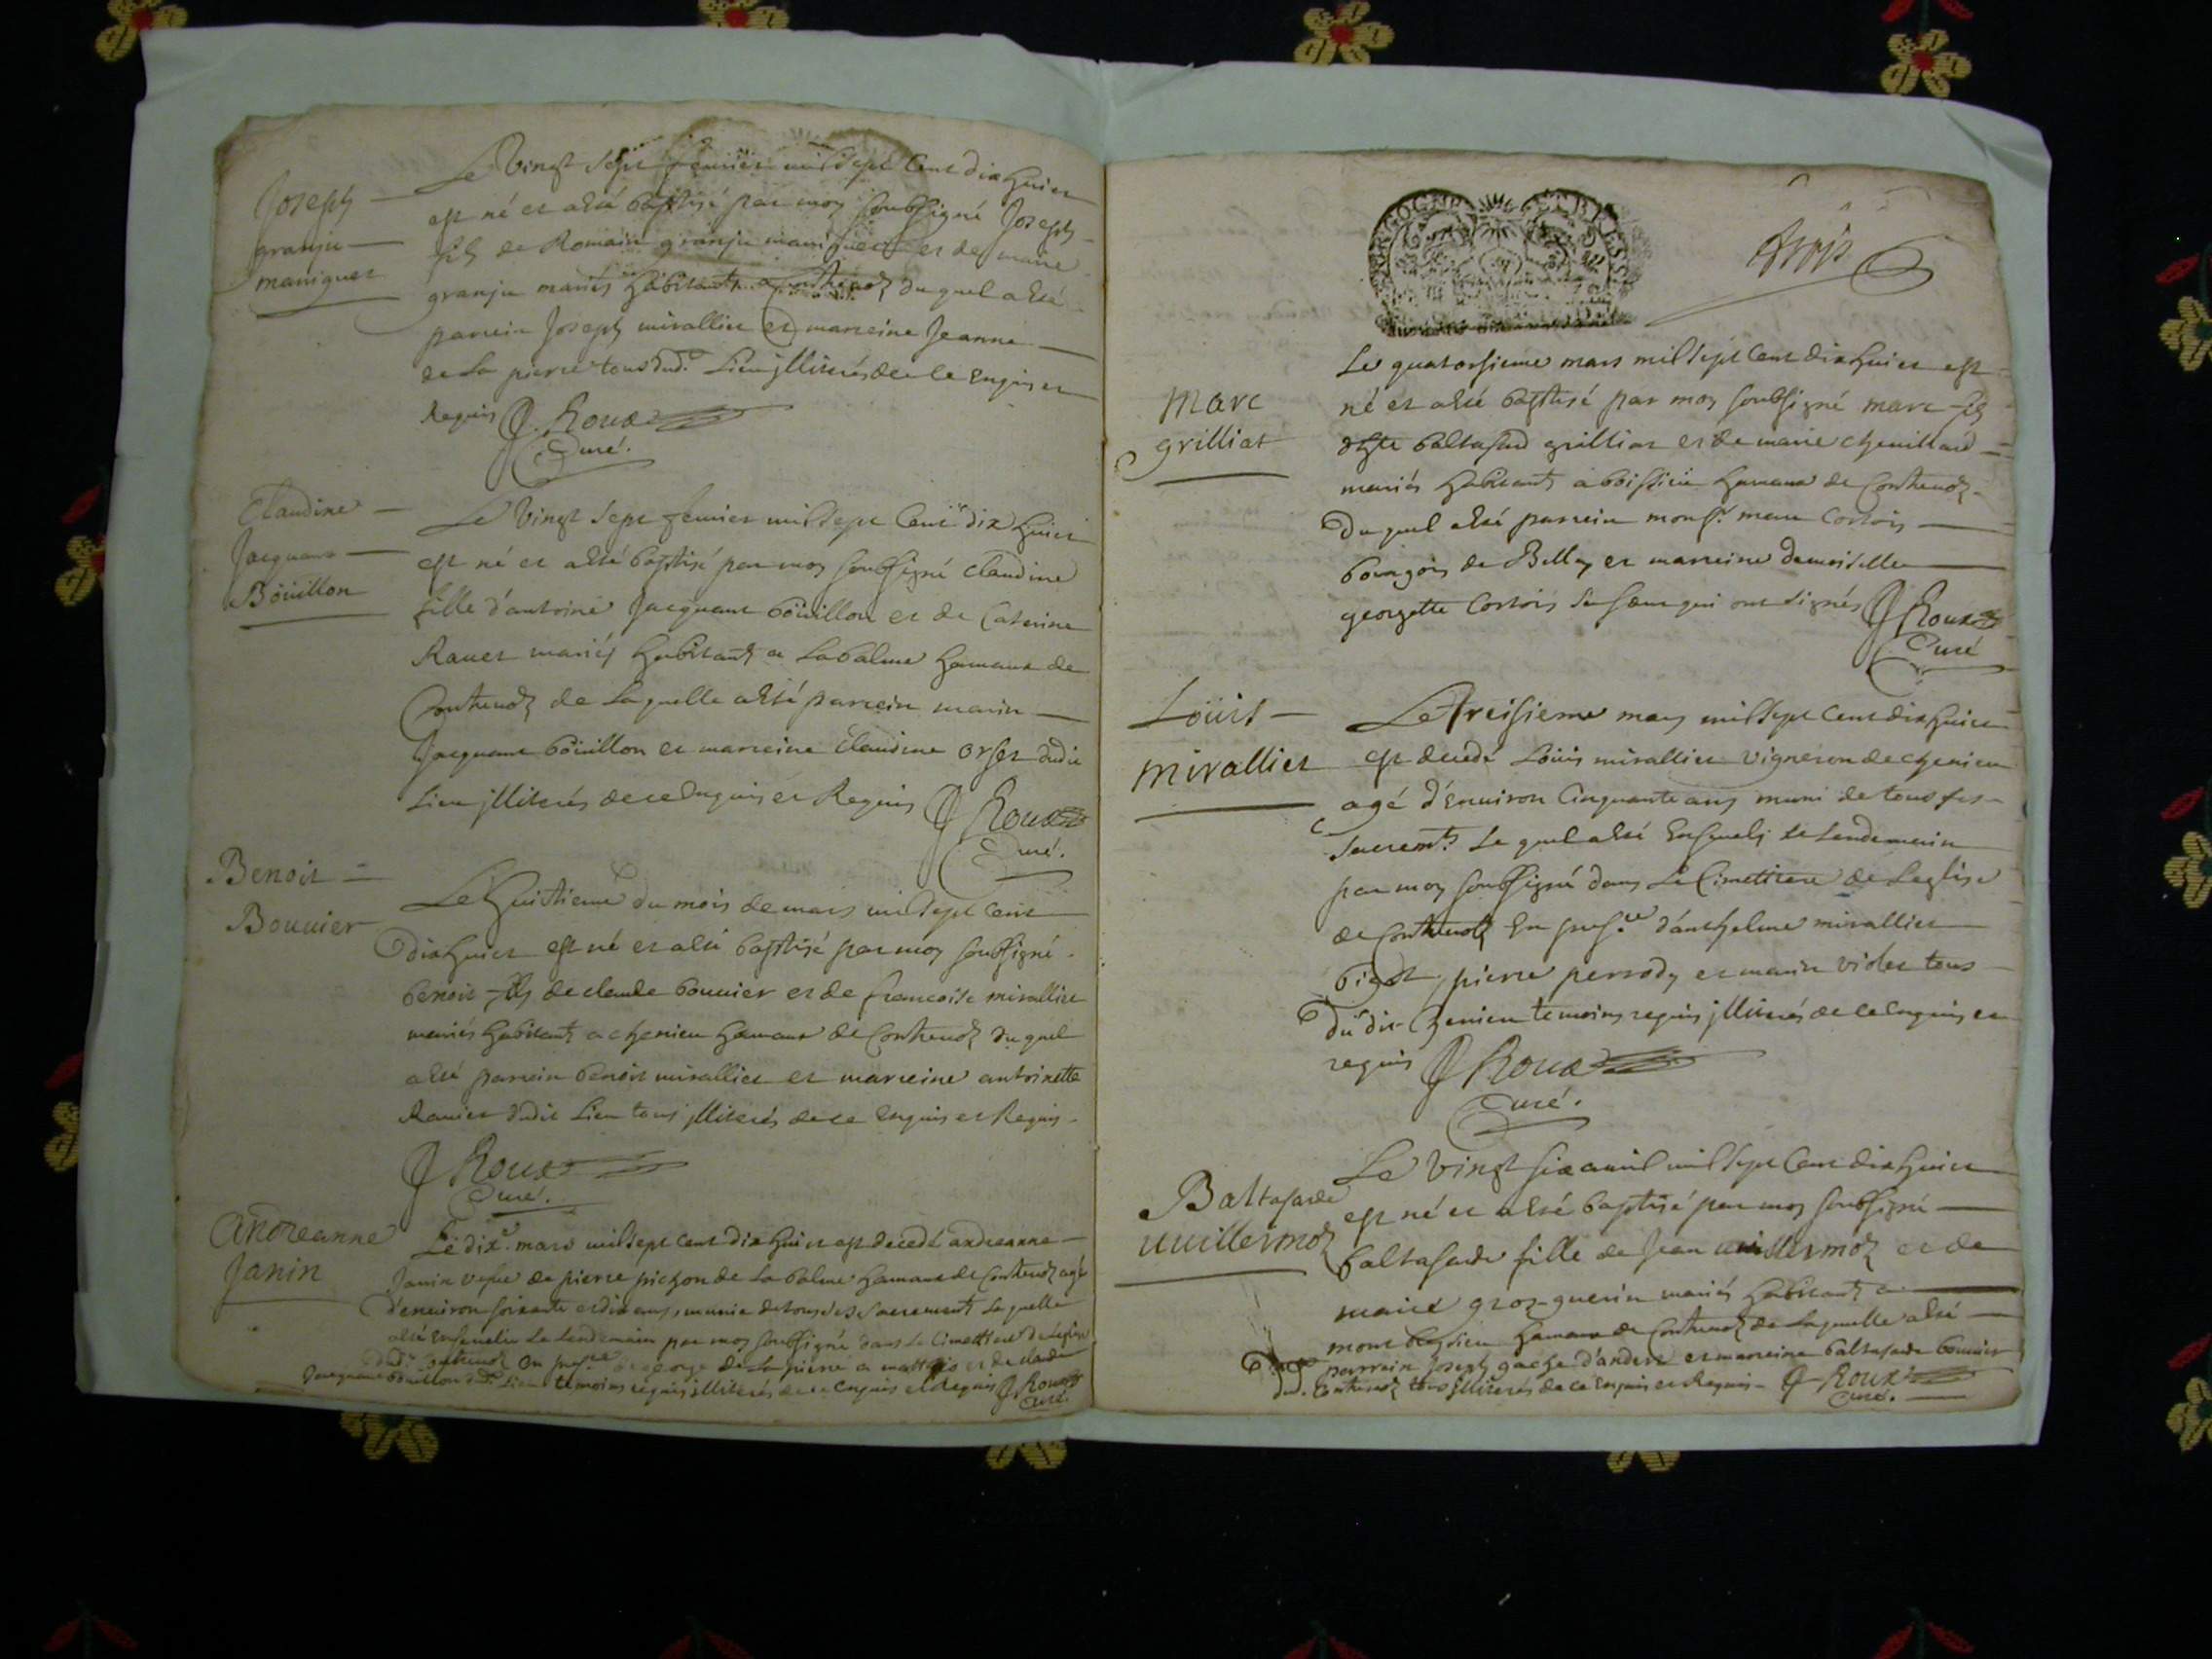 Joseph
granju
maniguet
Le vingt sept feurier mil sept cent dix huict
est né et a esté baptisé par moy soubsigné Joseph
fils de Romain granju maniguet et de marie
granju mariés habitants a Contreuoz duquel a esté
parrein Joseph mirallier et marreine Jeanne
de La pierre tous dud.^t Lieu jlliterés de ce Enquis et
Requis J Roux
Curé.
Claudine
Jacquand
Böüillon
Le Vingt sept feurier mil sept Cent dix huict
est né et a esté baptisé par moy soubsigné Claudine
fille d'antoine Jacquand böüillon et de Caterine
Rauet mariés habitants a La balme hamaux de
Contreuoz de Laquelle a esté parrein marin
Jacquand böüillon et marreine Claudine orset dudit
Lieu jlliterés de ce Enquis et Requis J Roux
Curé.
Benoit
Bouuier
Le huitieme du mois de mars mil sept cent
dix huict est né et a esté baptisé par moy soubsigné
benoit fils de claude bouuier et de francoise mirallier
mariés habitants a chenieu hamaux de Contreuoz duquel
a esté parrein benoit mirallier et marreine antoinette
Rauier dudit Lieu tous jlliterés de ce Enquis et Requis
J Roux
Curé.
Andreanne
Janin
Le dix^e mars mil sept cent dix huict est decedé andreanne
Janin vefue de pierre pichon de La balme hamaux de Contreuoz agé
d'enuiron soixante et dix ans, munie de tous ses sacrements Laquelle
a esté Enseuelie Le Lendemain par moy soubsigné dans Le Cimettiere de Leglise
dud.^t Contreuoz En pres.^ce de george de La pierre et de claude
Jacquand böüillon dud.^t Lieu temoins requis jlliterés de ce Enquis et Requis J Roux
Curé.
Marc
grilliet
Le quatorsieme mars mil sept Cent dix huict est
né et a esté baptisé par moy soubsigné marc fils
baltasard grilliet et de marie cheuillard
mariés habitants a boissieu hamaux de Contreuoz
Duquel a esté parrein mons.^r marc Cortois
bourgois de Belley et marreine demoiselle
georgette Cortois sa soeur qui ont signés J Roux
Curé
Löuis
mirallier
Le treisieme mars mil sept Cent dix huict
est decedé Löuis mirallier vigneron de chenieu
agé d'Enuiron Cinquante ans muni de tous ses
sacrem.^ts Lequel a esté Enseueli le Lendemain
par moy soubsigné dans Le Cimettiere de Leglise
de Contreuoz En pres.^ce d'anthelme mirallier
bigot, pierre perrody et marin violet tous
du dit chenieu temoins requis jlliterés de ce Enquis et
requis J Roux
Curé.
Baltasarde
uuillermoz
Le Vingt six auril mil sept Cent dix huict
est né et a esté baptisé par moy soubsigné
baltasarde fille de Jean uuillermoz et de
marie groz-guerin mariés habitants a
hamaux de Contreuoz de Laquelle a esté
parrein Joseph gache d'andert et marreine baltasarde bouuier
dud.^t Contreuoz tous jlliterés de ce Enquis et Requis J Roux
Curé.